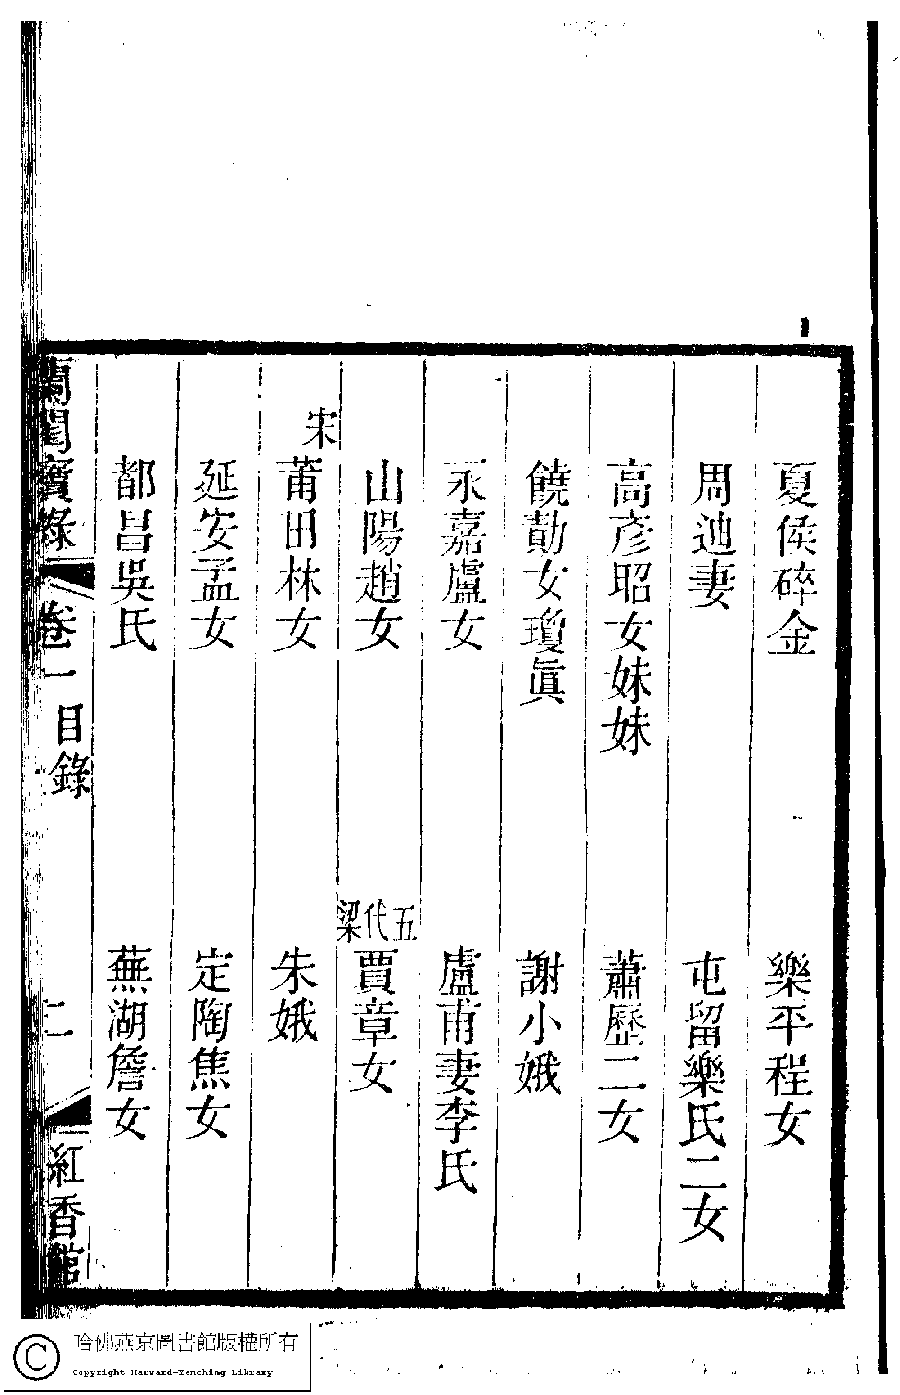 夏侯碎金 樂平程女
周迪妻 屯留樂氏二女
高彥昭女妹妹 蕭歷二女
饒勛女瓊眞 謝小娥
永嘉盧女 盧甫妻李氏
山陽趙女 五代梁 賈章女
宋 莆田林女 朱娥
延安孟女 定陶焦女
都昌吳氏 蕪湖詹女
蘭閨寶錄 卷一 目錄 二 紅香館
哈佛燕京圖書館版權所有
Copyright Harvard-Yenching Library